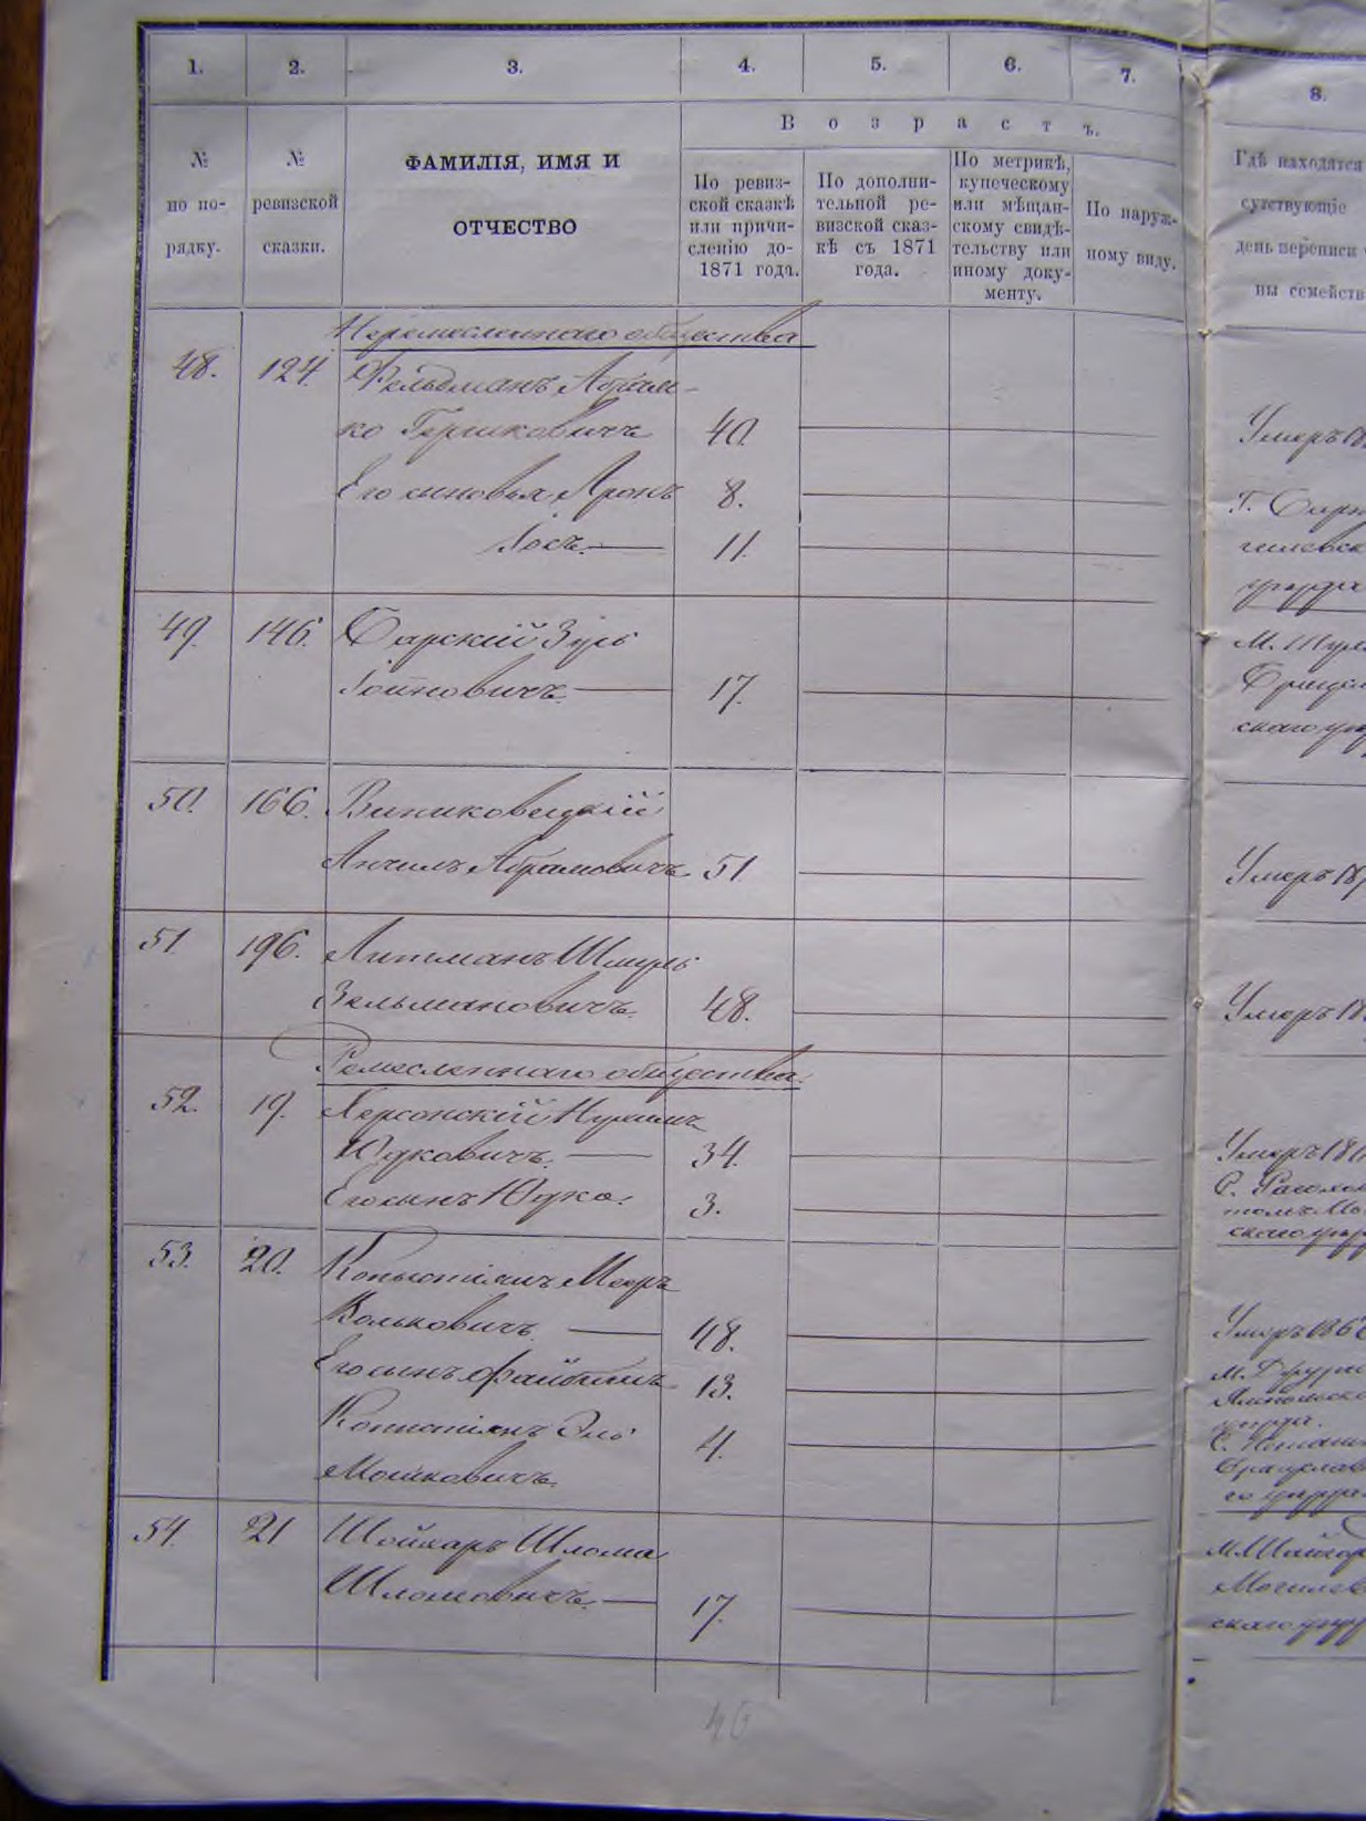 1. 2. 3. 4. 5. 6. 7. 8.
№ по порядку.
№ ревизской сказки.
ФАМИЛІЯ, ИМЯ И
ОТЧЕСТВО
Возрастъ.
По ревиз-
ской сказкѣ
или причи-
сленію до
1871 года.
По дополни-
тельной ре-
визской сказ-
кѣ съ 1871
года.
По метрикѣ,
купеческому
или мѣщан-
скому свидѣ-
тельству или
иному доку-
менту.
По наруж-
ному виду.
Гдѣ находятся
сутствующіе
день переписи
ны семейств
Неремесленнаго общества
48. 124. Фельдманъ Абрам-
ко Гершковичъ 40. Умеръ 18
Его сыновья Аронъ 8.
Іосъ 11.
уѣзда
49. 146. Барскій Зусь
Іойновичъ 17.
скаго уѣз
50. 166. Виниковецкій
Анчиль Абрамовичъ 51 Умеръ 18
51. 196. Литманъ Шмуль
Зельмановичъ 48. Умеръ 18
Ремесленнаго общества
52. 19. Херсонскій Нухимъ
Юдковичъ 34. Умеръ 18
Его сынъ Юдко. 3.
скаго уѣз
53. 20. Копыстіянъ Мееръ
Вольковичъ 48. Умеръ 186
Его сынъ Файбишъ 13.
уѣзда.
Копистіянъ Эль 4.
Мошковичъ Брацлав
го уѣзда
54. 21 Шойхаръ Шлома
Шломовичъ 17. Могилев
скаго уѣз
46